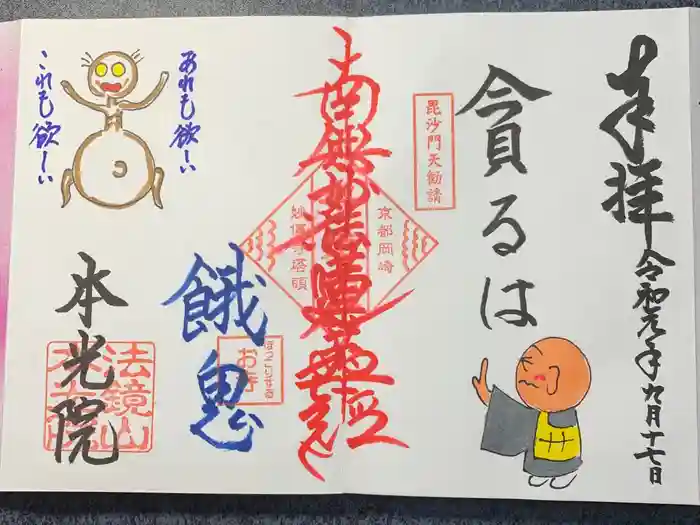 奉拝
令和元年九月十七日
貪るは
毘沙門天勧請
南無妙法蓮華経
京都岡崎
妙傳寺塔頭
餓鬼
ほっこりする
お寺
あれも欲しい
これも欲しい
本光院
法鏡山
本光院